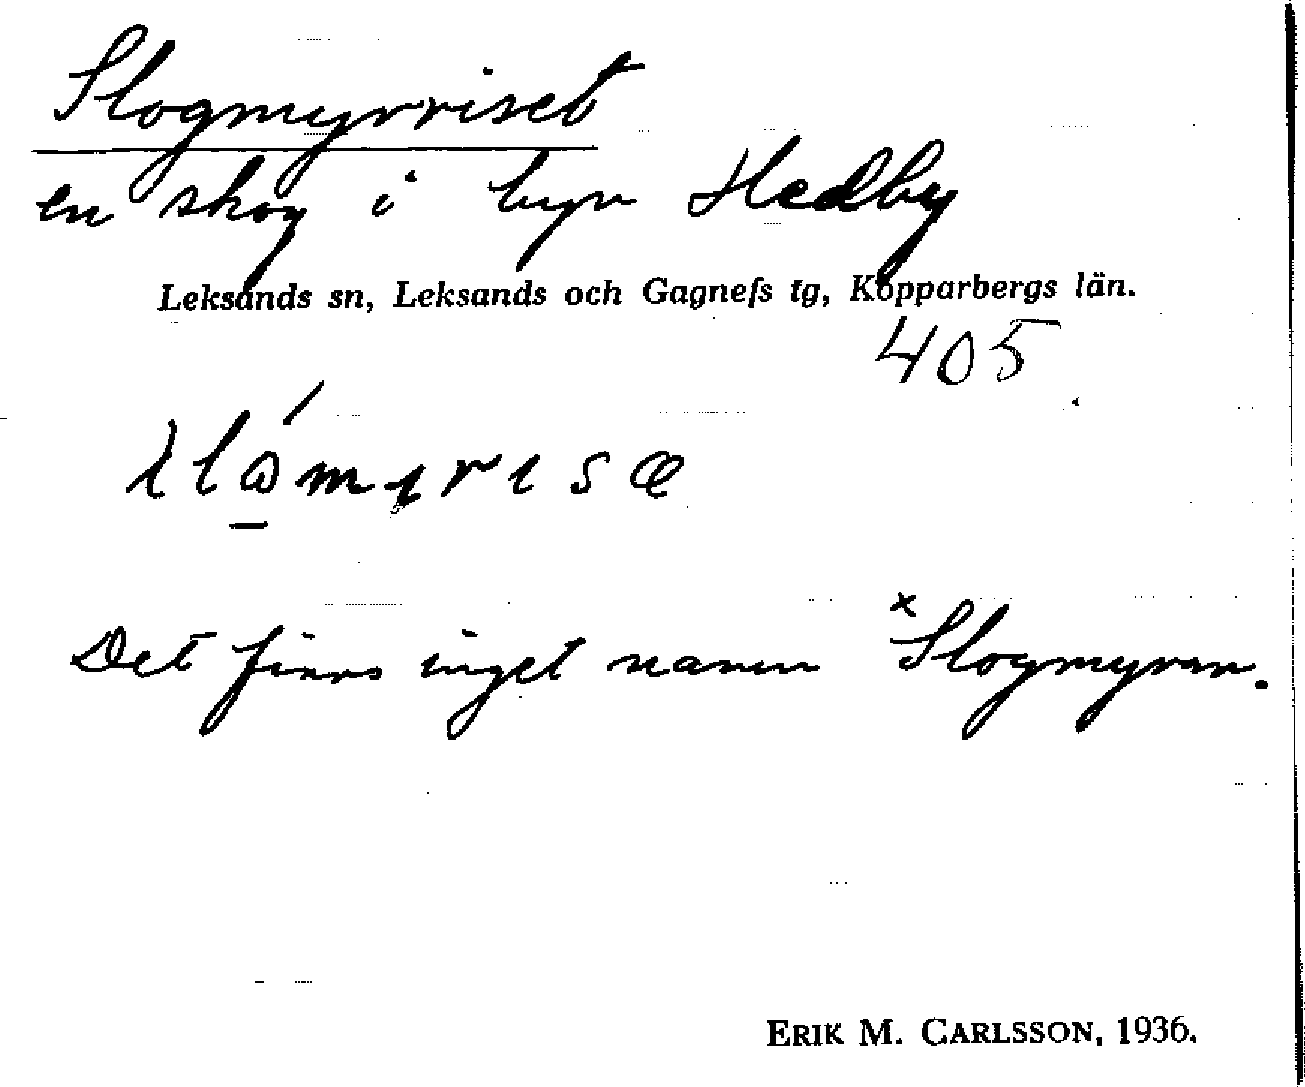 Slogmyrriset
en skog i byn Hedby
Leksands sn, Leksands och Gagnefs tg, Kopparbergs län.
405
Det finns inget namn ˣSlogmyran.
ERIK M. CARLSSON, 1936.